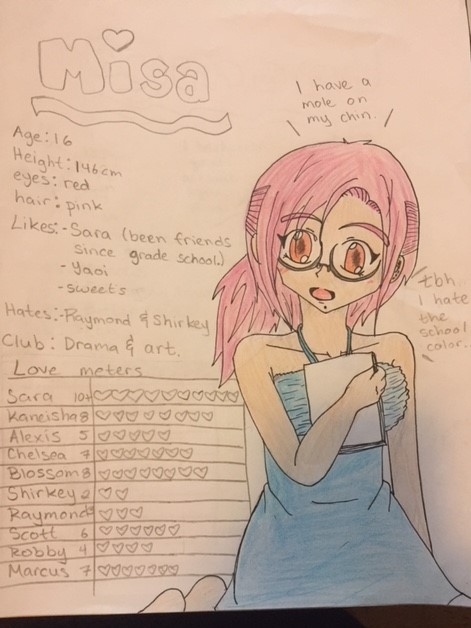 Misa
I have a
mole on
my chin.
Age: 16
Height: 146cm
eyes: red
hair: pink
Likes: - Sara (been friends
since grade school.)
- Yaoi
- sweets
Hates: - Raymond & Shirkey
Club: Drama & art.
tbh
I hate
the
school
color..
Love meters
Sara 10+ ♡♡♡♡♡♡♡♡♡♡♡
Kaneisha 8 ♡♡♡♡♡♡♡♡
Alexis 5 ♡♡♡♡♡
Chelsea 7 ♡♡♡♡♡♡♡
Blossom 8 ♡♡♡♡♡♡♡♡
Shirkey 2 ♡♡
Raymond 3 ♡♡♡
Scott 6 ♡♡♡♡♡♡
Robby 4 ♡♡♡♡
Marcus 7 ♡♡♡♡♡♡♡